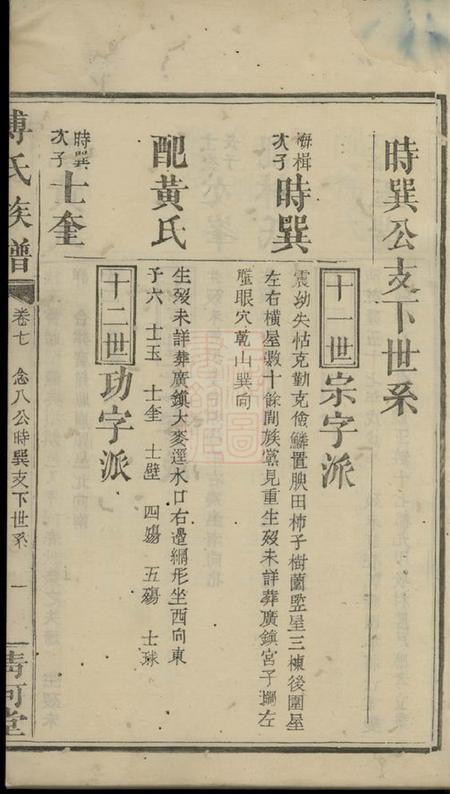 時巽公支下世系
十一世 宗字派
梅楫次子 時巽
震幼失怙克勤克儉鱗置腴田柿子樹蘭監屋三棟後圍屋
左右橫屋數十餘間族黨見重生歿未詳葬廣鎮宮子塥左
壟眼穴乾山巽向
配黃氏
生歿未詳葬廣鎮大麥逕水口右邊綱形坐西向東
子六 士玉 士奎 士壁 四殤 五殤 士球
十二世 功字派
時巽次子 士奎
傅氏族譜 卷七 念八公時巽支下世系 一 清河堂